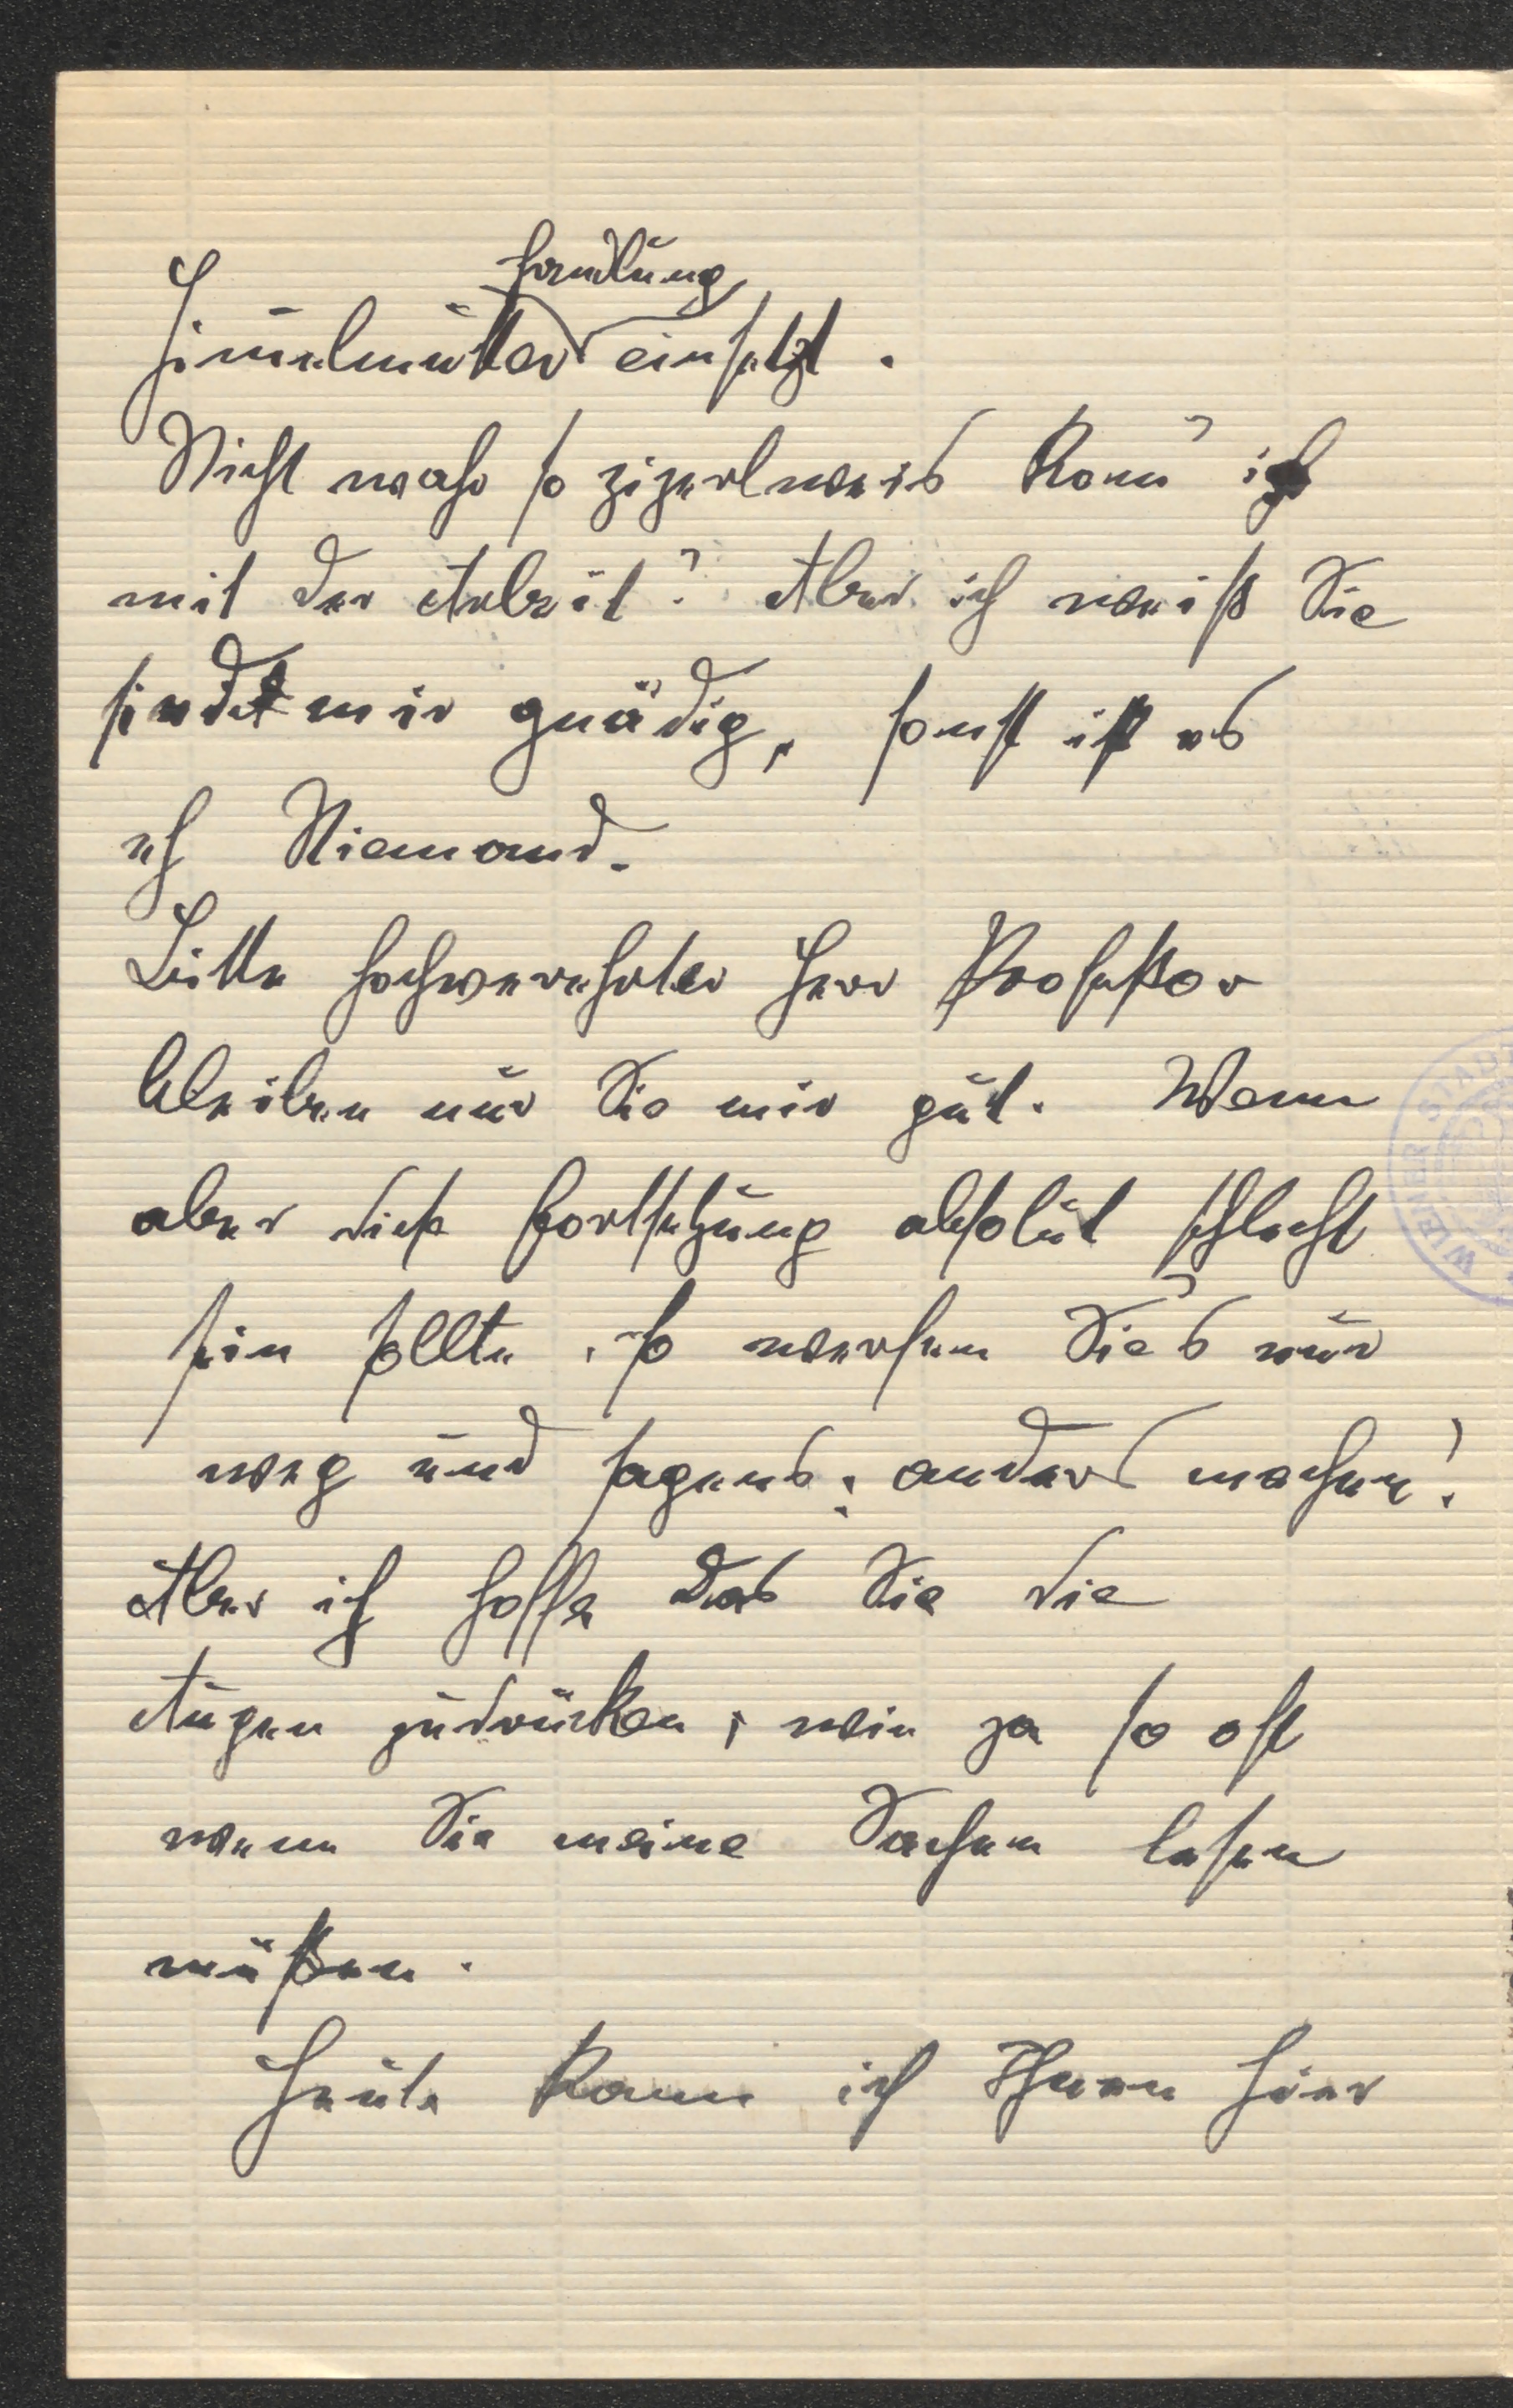 Handlung
Himmelmutter einsetzt.
Nicht wahr so zizerlweis kom̄' ich
mit der Arbeit? Aber ich weiß Sie
sind mir gnädig, sonst ist es
eh Niemand.
Bitte hochverehrter Herr Profeßor
bleiben nur Sie mir gut. Wenn
aber diese Fortsetzung absolut schlecht
sein sollte, so werfen Sie's nur
weg und sagens: anders machen!
Aber ich hoffe das Sie die
Augen zudrücken, wie ja so oft
wenn Sie meine Sachen lesen
müßen.
Heute kann ich Ihnen hier
WIENER STADT